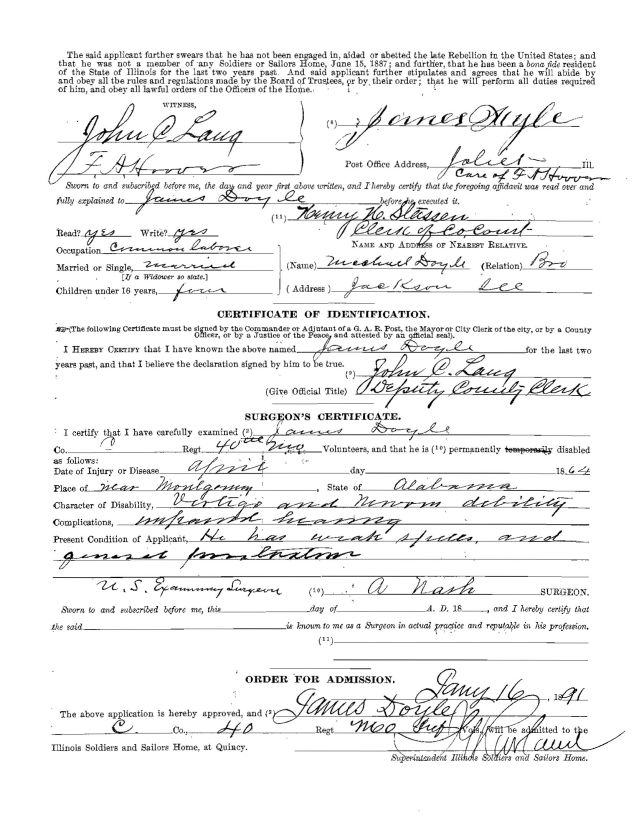 The said applicant further swears that he has not been engaged in, aided or abetted the late Rebellion in the United States; and
that he was not a member of any Soldiers or Sailors Home, June 15, 1887; and further, that he has been a bona fide resident
of the State of Illinois for the last two years past. And said applicant further stipulates and agrees that he will abide by
and obey all the rules and regulations made by the Board of Trustees, or by their order; that he will perform all duties required
of him, and obey all lawful orders of the Officers of the Home.
WITNESS,
John C Lang
F A Hoover
(8) James Doyle
Post Office Address, Joliet Ill.
Care of F A Hoover
Sworn to and subscribed before me, the day and year first above written, and I hereby certify that the foregoing affidavit was read over and
fully explained to James Doyle before he executed it.
(11) Henry N. Stassen
Clerk of Co Court
Read? Yes Write? Yes
Occupation Common laborer
Married or Single, married
[If a Widower so state.]
Children under 16 years, four
NAME AND ADDRESS OF NEAREST RELATIVE.
(Name) Michael Doyle (Relation) Bro
(Address) Jackson Ill
CERTIFICATE OF IDENTIFICATION.
(The following Certificate must be signed by the Commander or Adjutant of a G. A. R. Post, the Mayor or City Clerk of the city, or by a County
Officer, or by a Justice of the Peace, and attested by an official seal).
I HEREBY CERTIFY that I have known the above named James Doyle for the last two
years past, and that I believe the declaration signed by him to be true.
(9) John C. Lang
(Give Official Title) Deputy County Clerk
SURGEON'S CERTIFICATE.
I certify that I have carefully examined (2) James Doyle
Co. Regt. 40th Mo Volunteers, and that he is (10) permanently temporarily disabled
as follows:
Date of Injury or Disease April day 1864
Place of near Montgomery, State of Alabama
Character of Disability, Vertigo and Nervous debility
Complications, impaired hearing
Present Condition of Applicant, He has weak spells, and
general prostration
U. S. Examining Surgeon (10) A Nash SURGEON.
Sworn to and subscribed before me, this day of A. D. 18 , and I hereby certify that
the said is known to me as a Surgeon in actual practice and reputable in his profession.
(11)
ORDER FOR ADMISSION.
Jany 16, 1891
The above application is hereby approved, and (2) James Doyle
C. Co., 40 Regt Mo Inf Vols., will be admitted to the
Illinois Soldiers and Sailors Home, at Quincy.
Superintendent Illinois Soldiers and Sailors Home.